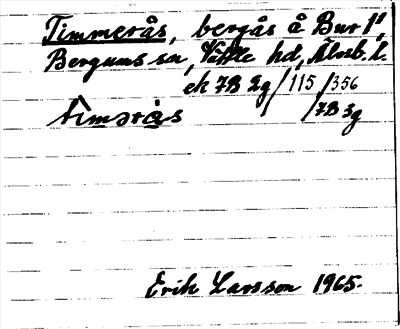 Timmerås, bergås å Bur 1¹,
Bergums sn, Vättle hd, Älvsb. l.
ek 7B 2g/115/356
tìmərås /7B 3g
Erik Larsson 1965.